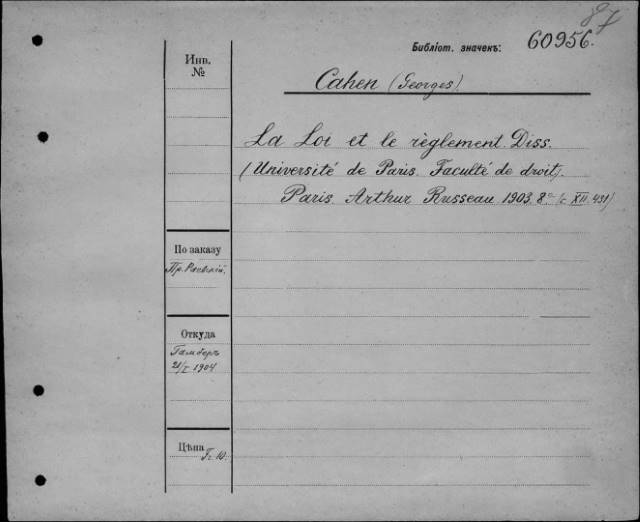 87
Библіот. значекъ: 60956.
Инв.
№
Cahen (Georges)
La Loi et le règlement. Diss.
(Université de Paris. Faculté de droit).
Paris. Arthur Rousseau 1903. 8° (с XII. 431)
По заказу
Пр.
Откуда
Гамберъ
21/I 1904
Цѣна
Fr. 10.